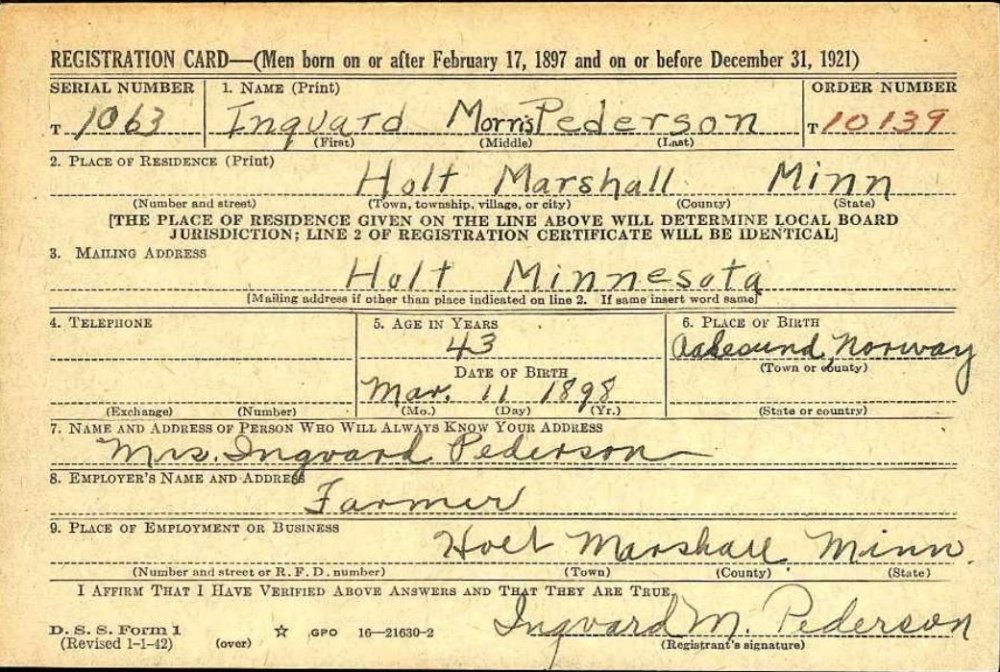 REGISTRATION CARD—(Men born on or after February 17, 1897 and on or before December 31, 1921)
SERIAL NUMBER 1. NAME (Print) ORDER NUMBER
T 1063 Ingvard Morris Pederson T 10139
(First) (Middle) (Last)
2. PLACE OF RESIDENCE (Print)
Holt Marshall Minn
(Number and street) (Town, township, village, or city) (County) (State)
[THE PLACE OF RESIDENCE GIVEN ON THE LINE ABOVE WILL DETERMINE LOCAL BOARD
JURISDICTION; LINE 2 OF REGISTRATION CERTIFICATE WILL BE IDENTICAL]
3. MAILING ADDRESS
Holt Minnesota
[Mailing address if other than place indicated on line 2. If same insert word same]
4. TELEPHONE 5. AGE IN YEARS 6. PLACE OF BIRTH
43 Aalesund, Norway
DATE OF BIRTH (Town or county)
Mar. 11 1898
(Exchange) (Number) (Mo.) (Day) (Yr.) (State or country)
7. NAME AND ADDRESS OF PERSON WHO WILL ALWAYS KNOW YOUR ADDRESS
Mrs. Ingvard Pederson
8. EMPLOYER'S NAME AND ADDRESS
Farmer
9. PLACE OF EMPLOYMENT OR BUSINESS
Holt Marshall Minn.
(Number and street or R. F. D. number) (Town) (County) (State)
I AFFIRM THAT I HAVE VERIFIED ABOVE ANSWERS AND THAT THEY ARE TRUE.
Ingvard M. Pederson
D. S. S. Form 1 ☆ GPO 16—21630-2
(Revised 1-1-42) (over) (Registrant's signature)